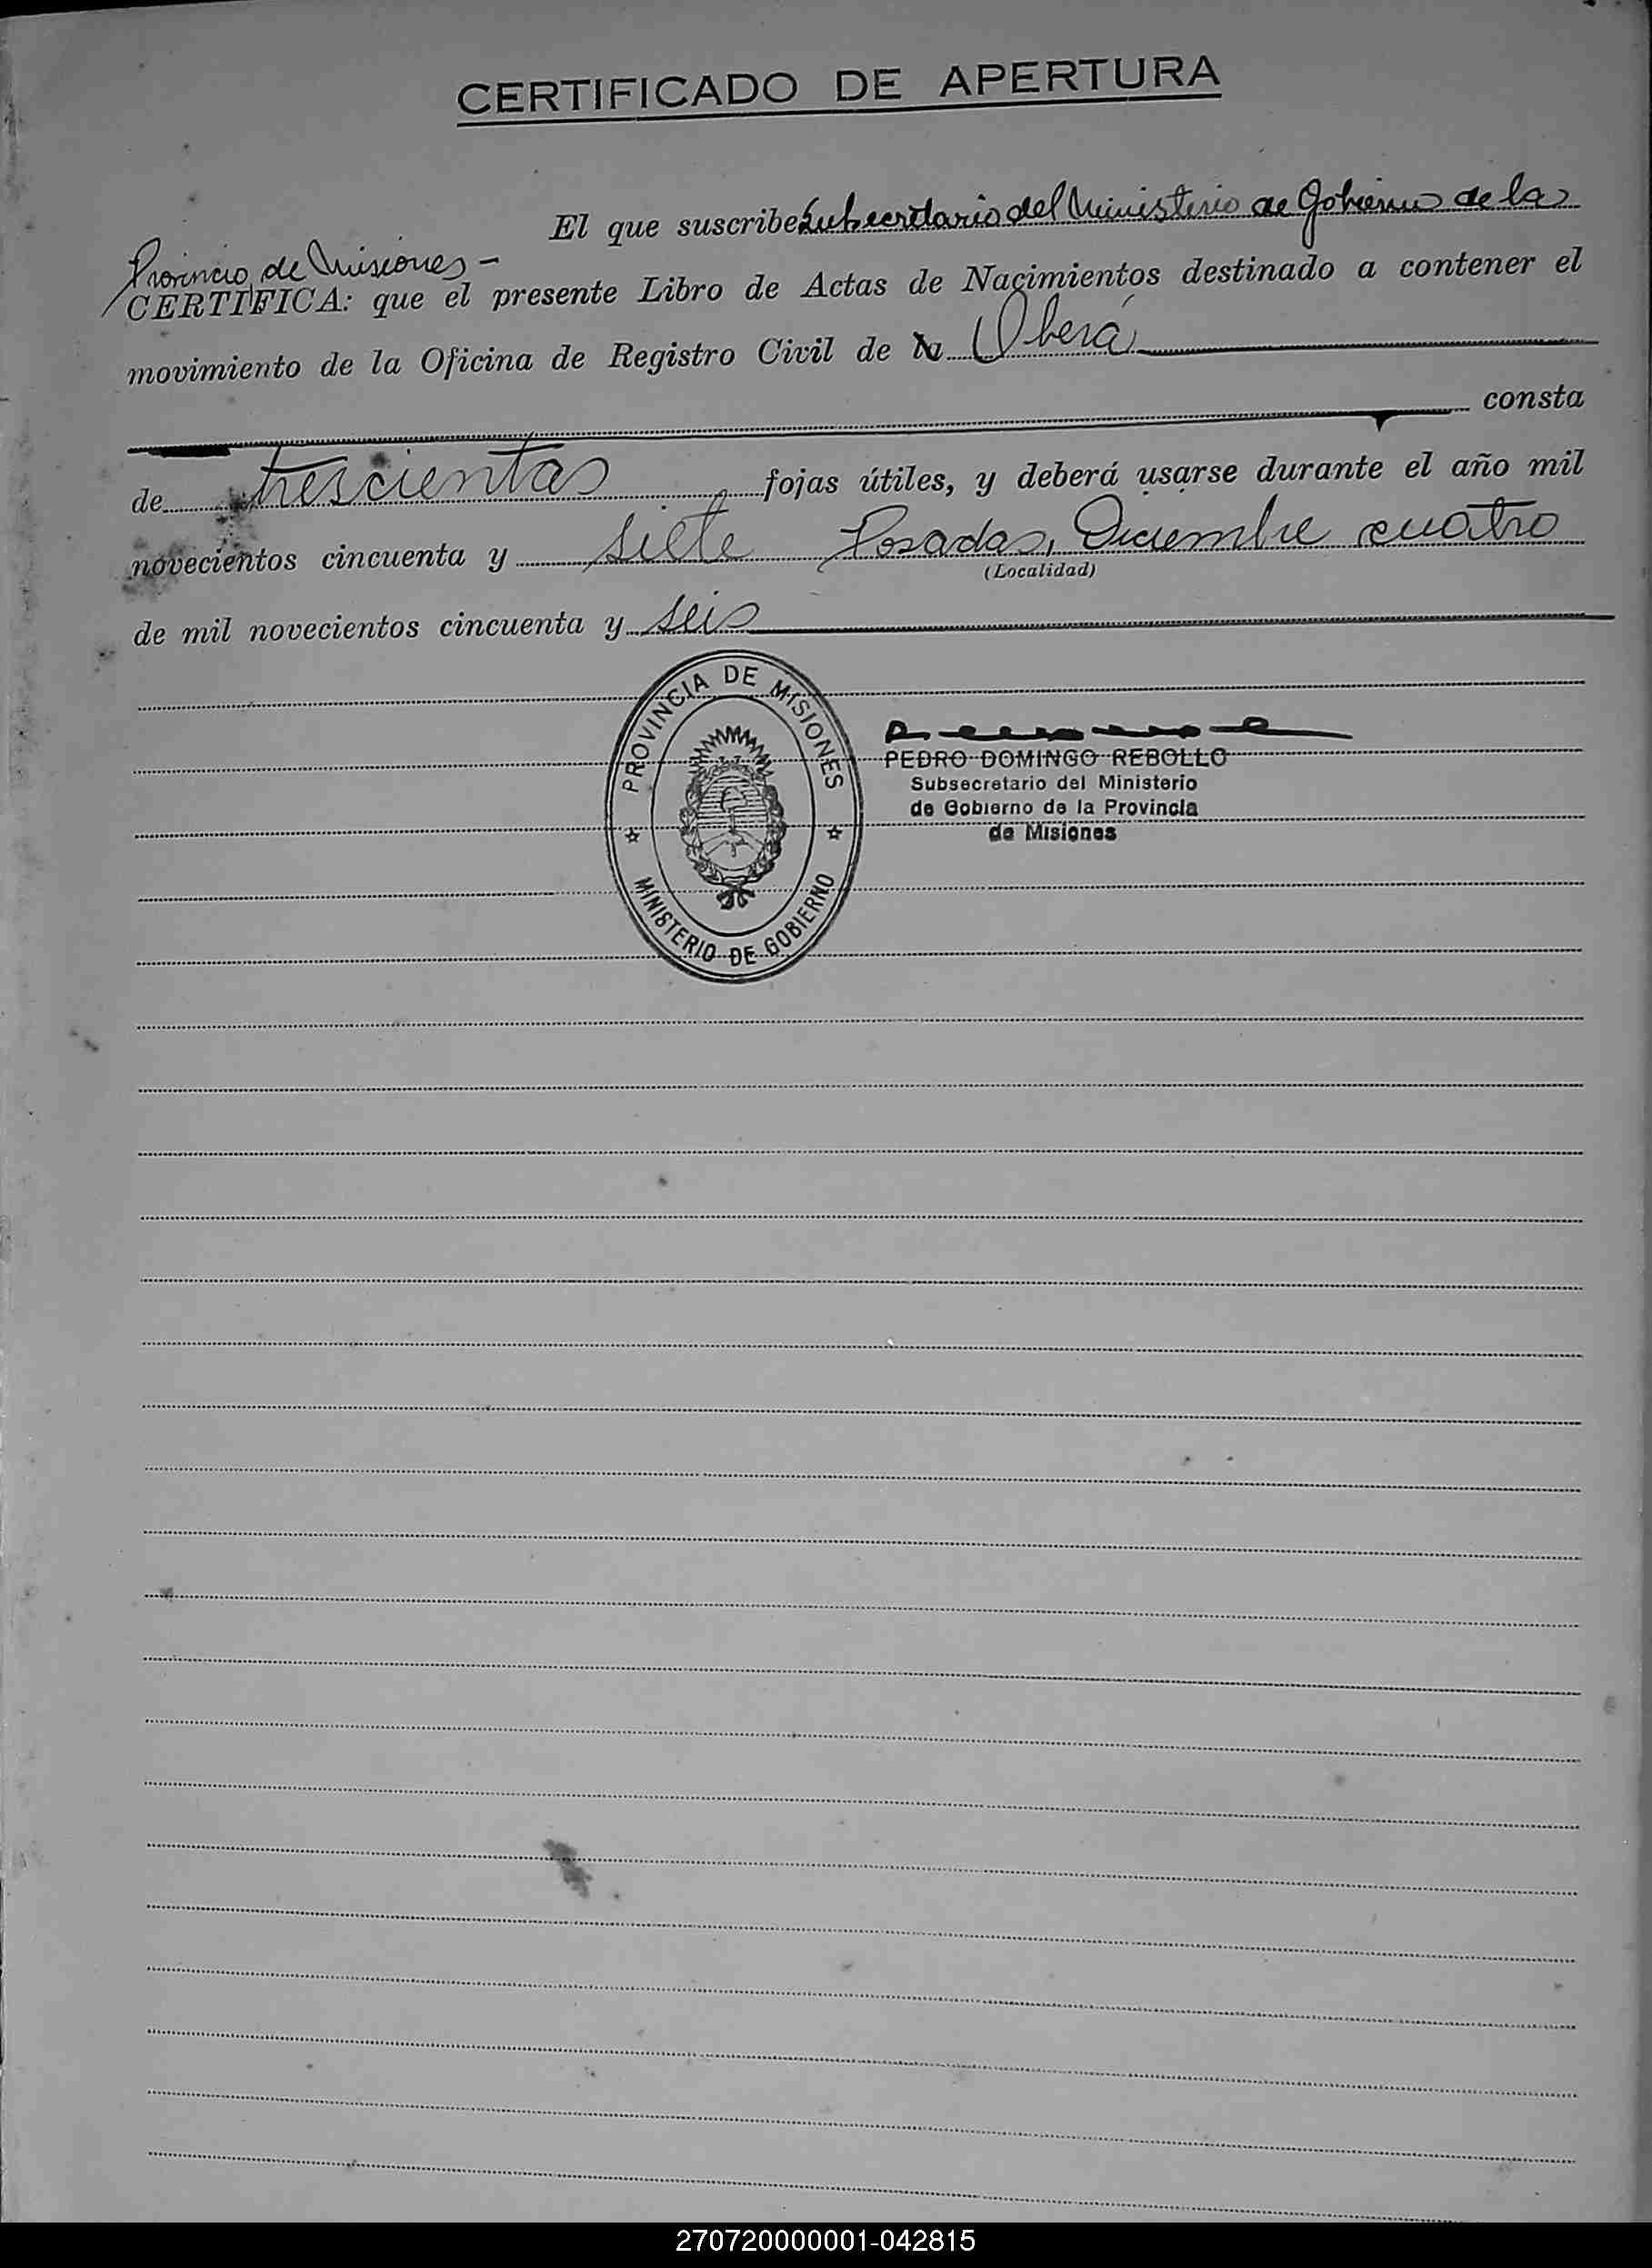 CERTIFICADO DE APERTURA
El que suscribe Subsecretario del Ministerio de Gobierno de la
Provincia de Misiones -
CERTIFICA: que el presente Libro de Actas de Nacimientos destinado a contener el
movimiento de la Oficina de Registro Civil de Oberá
consta
de trescientas fojas útiles, y deberá usarse durante el año mil
novecientos cincuenta y siete Posadas, Diciembre cuatro
(Localidad)
de mil novecientos cincuenta y seis
PROVINCIA DE MISIONES
MINISTERIO DE GOBIERNO
PEDRO DOMINGO REBOLLO
Subsecretario del Ministerio
de Gobierno de la Provincia
de Misiones
270720000001-042815